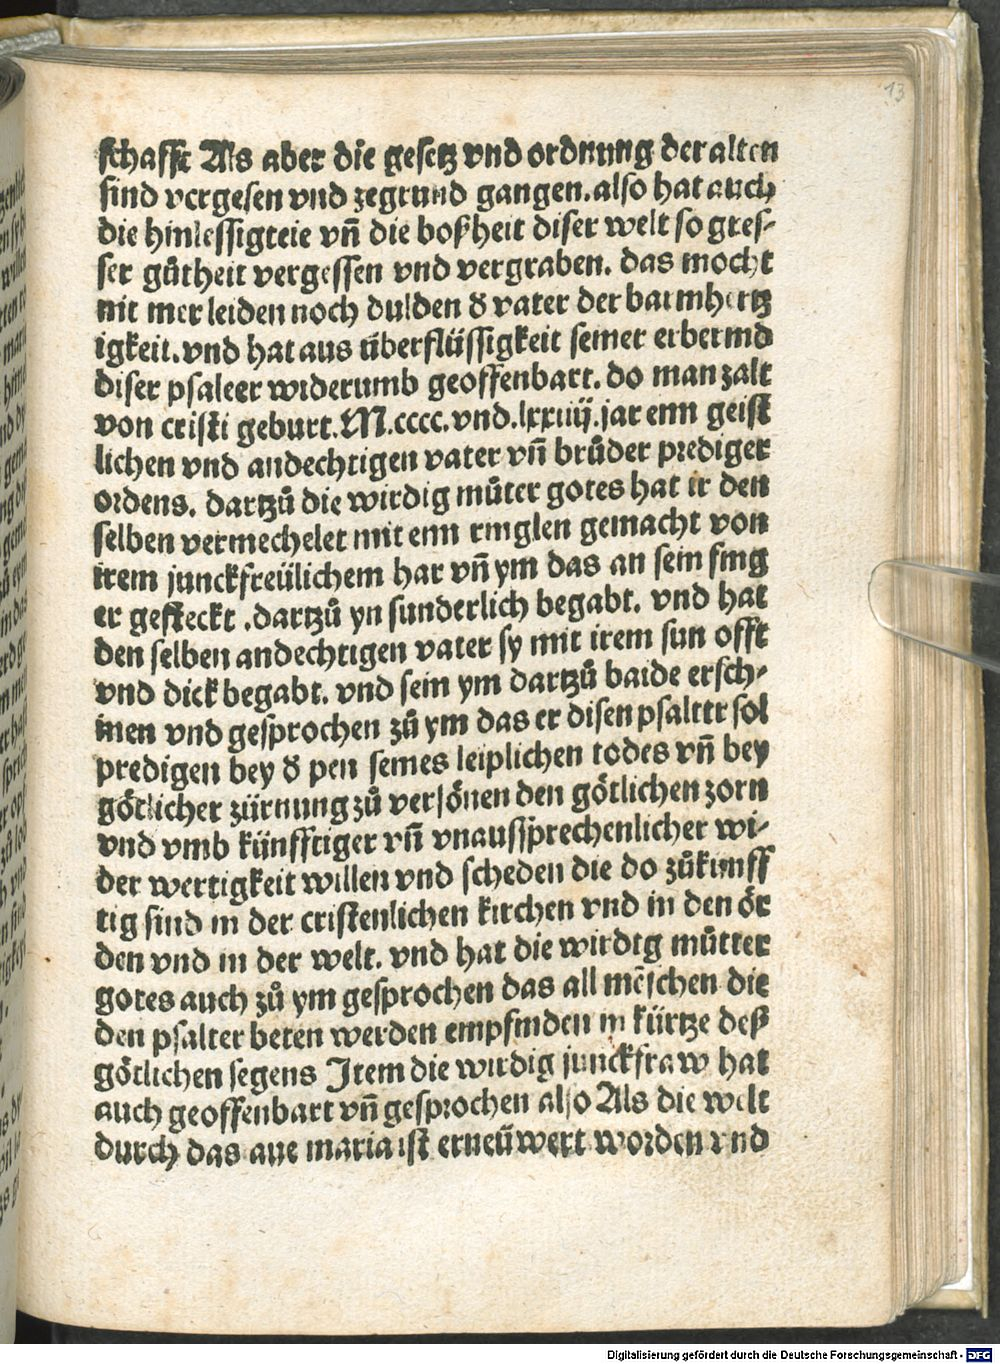 13
schafft Als aber die gesetz vnd ordnung der alten
sind vergesen vnd zegrund gangen. also hat auch
die hinlessigteie vn̄ die boßheit diser welt so gres-
ser gůtheit vergessen vnd vergraben. das mocht
nit mer leiden noch dulden d̕ vater der barmhertz
igkeit. vnd hat aus überflüssigkeit seiner erbermd
diser psalter widerumb geoffenbart. do man zalt
von cristi geburt. M.cccc. vnd. lxxiiij. jar enn geist
lichen vnd andechtigen vater vn̄ brůder prediger
ordens. dartzů die wirdig můter gotes hat ir den
selben vermechelet mit enn ringlen gemacht von
irem junckfreülichem har vn̄ ym das an sein fing
er gesteckt .dartzů yn sunderlich begabt. vnd hat
den selben andechtigen vater sy mit irem sun offt
vnd dick begabt. vnd sein ym dartzů baide ersch-
inen vnd gesprochen zů ym das er disen psalter sol
predigen bey d̕ pen seines leiplichen todes vn̄ bey
götlicher zürnung zů versönen den götlichen zorn
vnd vmb künfftiger vn̄ vnaussprechenlicher wi-
der wertigkeit willen vnd scheden die do zůkunff
tig sind in der cristenlichen kirchen vnd in den ör
den vnd in der welt. vnd hat die wirdig můtter
gotes auch zů ym gesprochen das all mēschen die
den psalter beten werden empfinden in kürtze deß
götlichen segens Item die wirdig junckfraw hat
auch geoffenbart vn̄ gesprochen also Als die welt
durch das aue maria ist erneüwert worden vnd
Digitalisierung gefördert durch die Deutsche Forschungsgemeinschaft - DFG